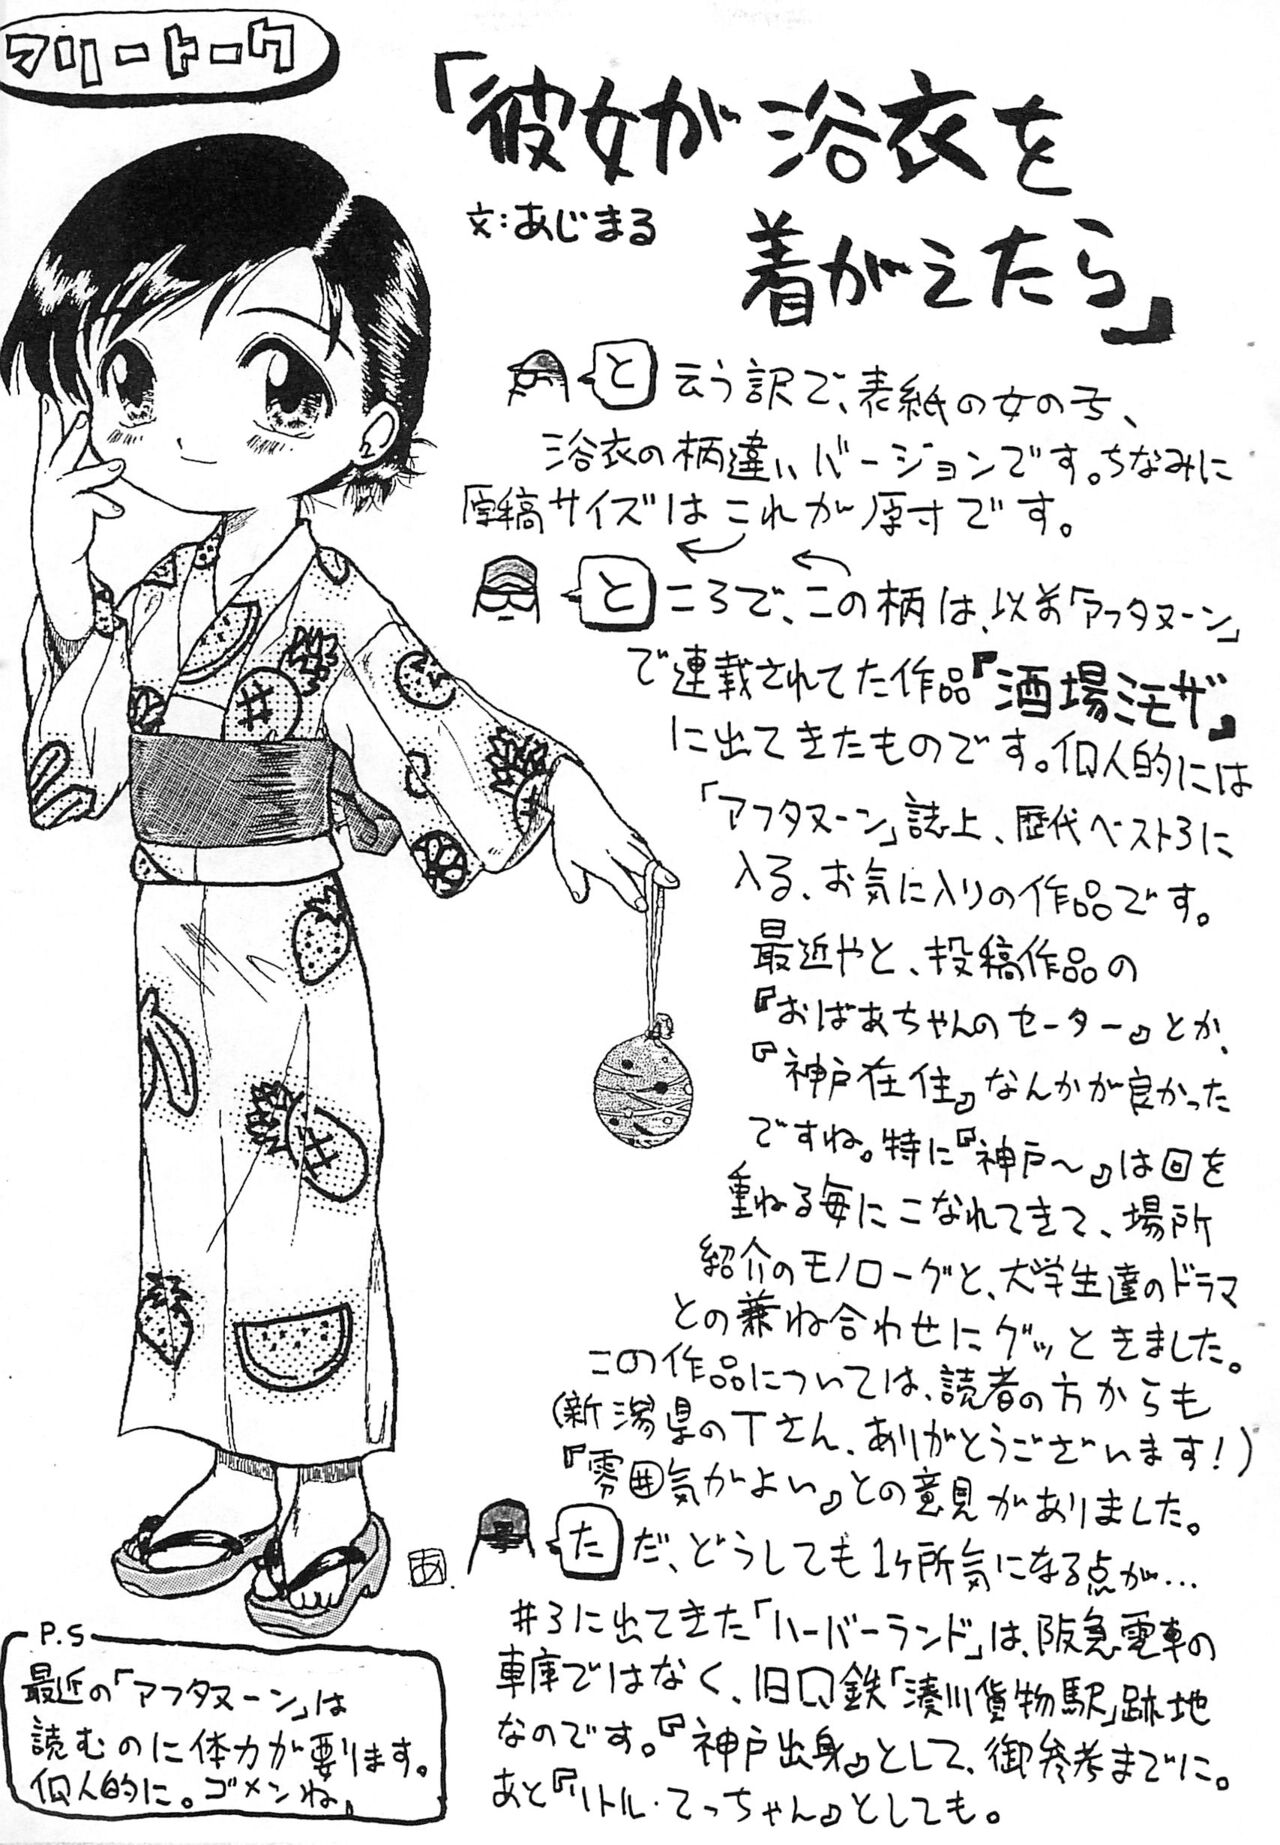 フリートーク
「彼女が浴衣を
着がえたら」
文:あじまる
と云う訳で、表紙の女の子、
浴衣の柄違いバージョンです。ちなみに
原稿サイズはこれが原寸です。
ところで、この柄は、以前「アフタヌーン」
で連載されてた作品『酒場ミモザ』
に出てきたものです。個人的には
「アフタヌーン」誌上、歴代ベスト3に
入る、お気に入りの作品です。
最近やと、投稿作品の
『おばあちゃんのセーター』とか、
『神戸在住』なんかが良かった
ですね。特に『神戸〜』は回を
重ねる毎にこなれてきて、場所
紹介のモノローグと、大学生達のドラマ
との兼ね合わせにグッときました。
この作品については、読者の方からも
(新潟県のTさん、ありがとうございます!)
『雰囲気がよい』との意見がありました。
ただ、どうしても1ヶ所気になる点が…
#3に出てきた「ハーバーランド」は、阪急電車の
車庫ではなく、旧国鉄「湊川貨物駅」跡地
なのです。『神戸出身』として、御参考までに。
あと『リトル・てっちゃん』としても。
あ.
P.S
最近の「アフタヌーン」は
読むのに体力が要ります。
個人的に。ゴメンね。